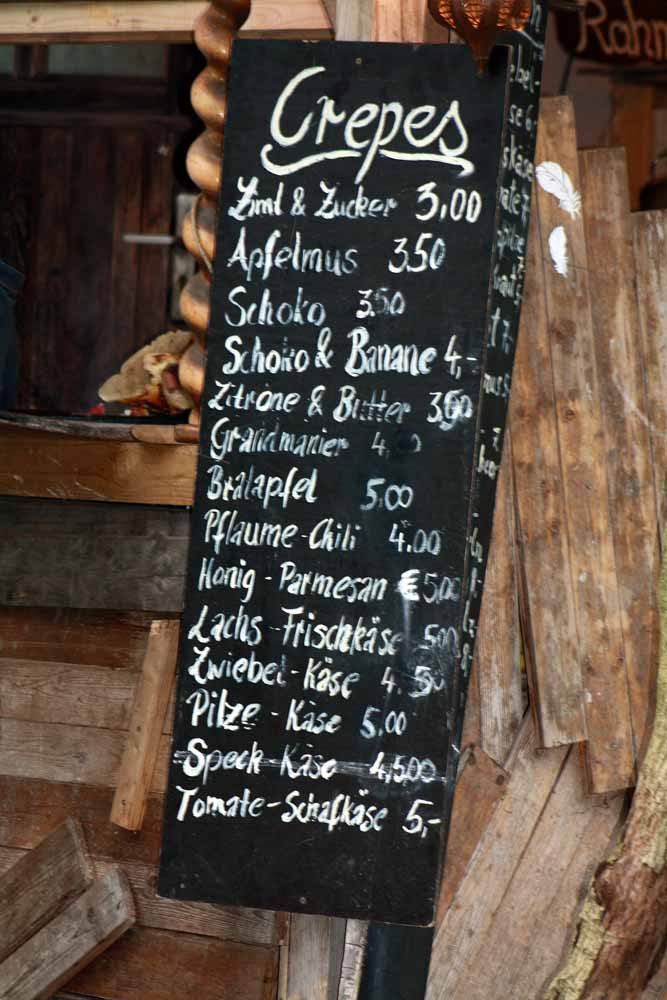 Crepes
Zimt & Zucker 3,00
Apfelmus 3.50
Schoko 3.50
Schoko & Banane 4,-
Zitrone & Butter 3,50
Grandmanier 4,
Bratapfel 5,00
Pflaume-Chili 4.00
Honig - Parmesan €5,00
Lachs-Frischkäse 5,00
Zwiebel-Käse 4.50
Pilze - Käse 5,00
Speck-Käse 4,500
Tomate-Schafkäse 5,-